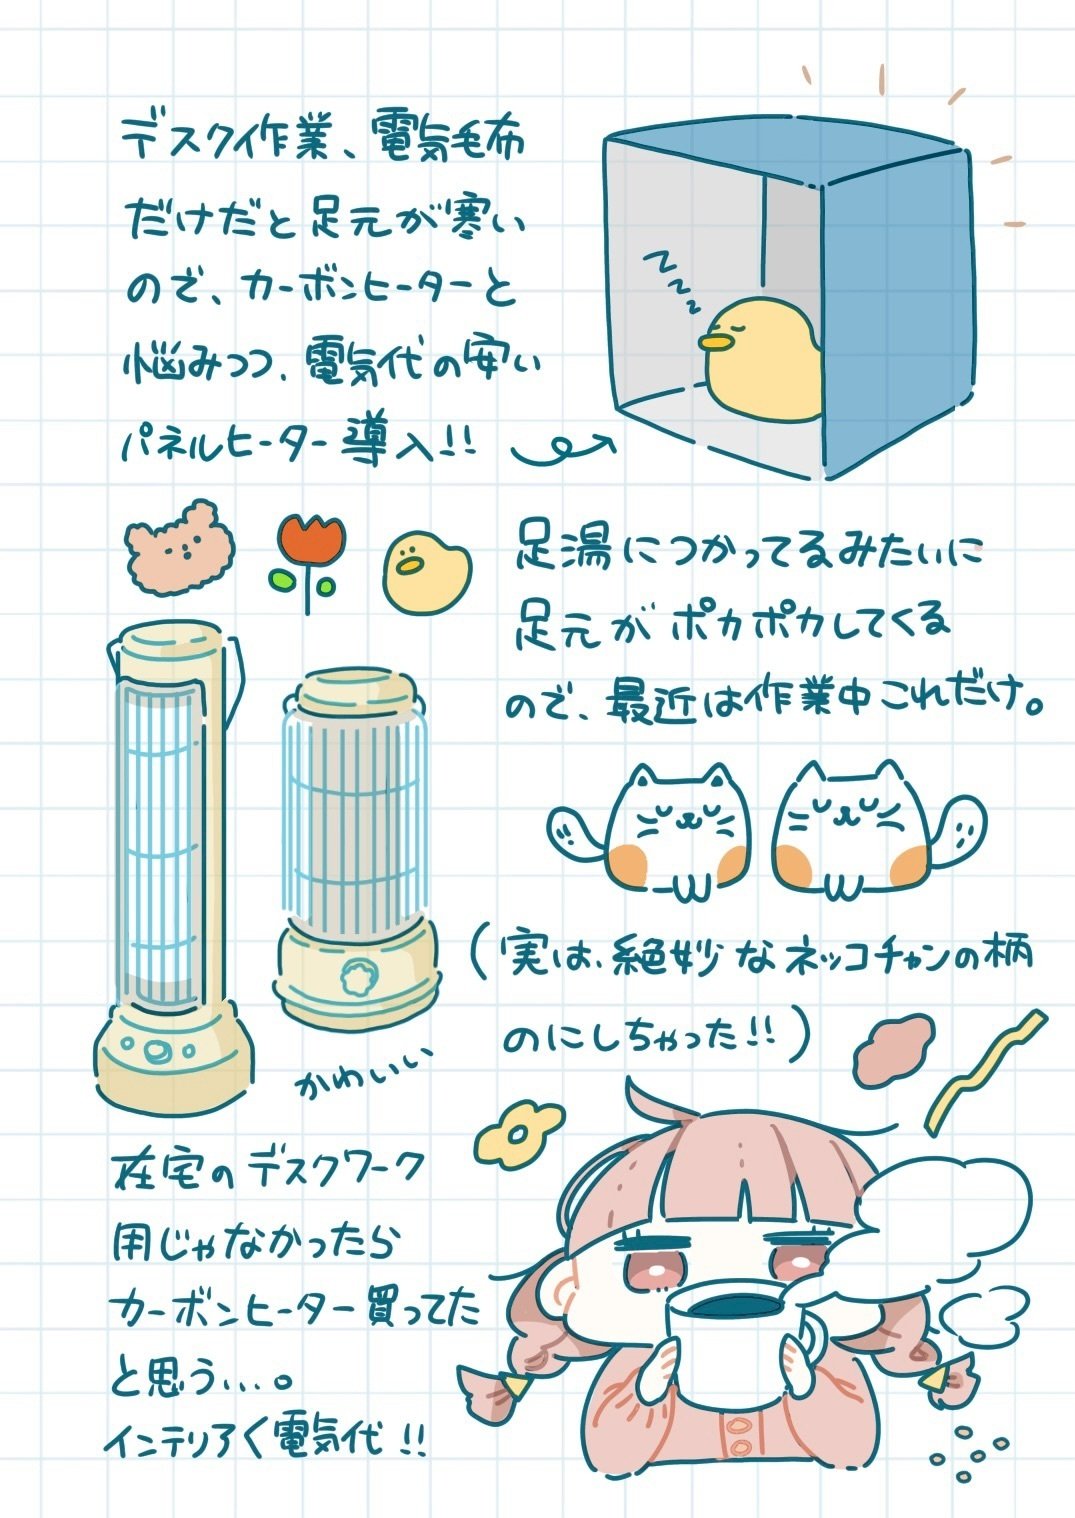 デスク作業、電気毛布
だけだと足元が寒い
ので、カーボンヒーターと
悩みつつ、電気代の安い
パネルヒーター導入!!
zzzz
足湯につかってるみたいに
足元がポカポカしてくる
ので、最近は作業中これだけ。
(実は、絶妙なネッコチャンの柄
のにしちゃった!!)
かわいい
在宅のデスクワーク
用じゃなかったら
カーボンヒーター買ってた
と思う...。
インテリアく電気代!!